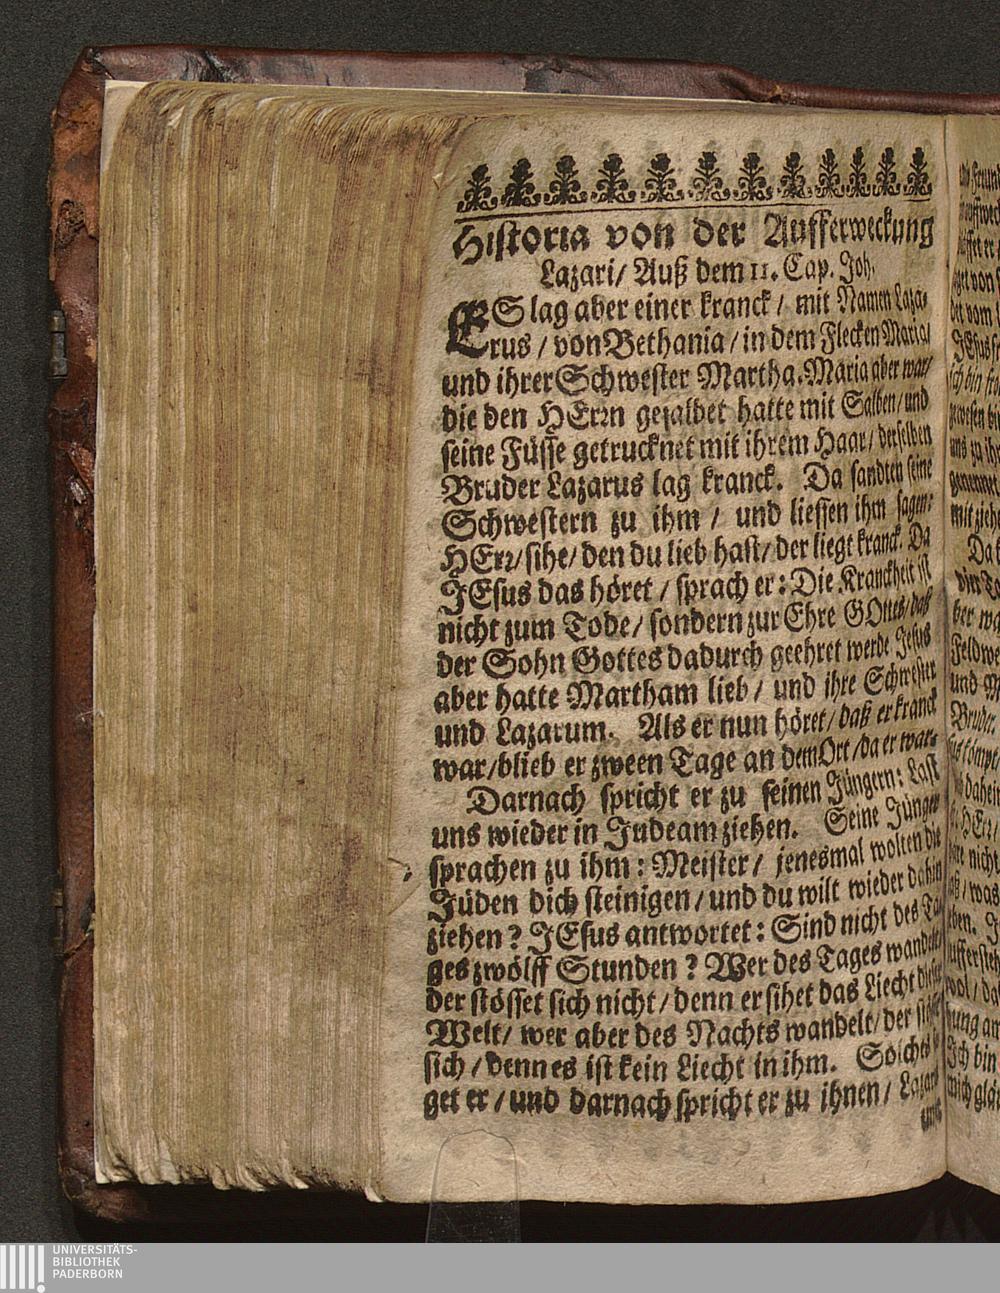 Historia von der Aufferweckung
Lazari/ Auß dem 11. Cap. Joh.
ES lag aber einer kranck/ mit Namen Laza-
rus/ von Bethania/ in dem Flecken Mariaͤ
und ihrer Schwester Martha. Maria aber war/
die den HErrn gesalbet hatte mit Salben/ und
seine Füsse getrucknet mit ihrem Haar/ derselben
Bruder Lazarus lag kranck. Da sandten seine
Schwestern zu ihm/ und liessen ihm sagen:
HErr/ sihe/ den du lieb hast/ der liegt kranck. Da
JEsus das höret/ sprach er: Die Kranckheit ist
nicht zum Tode/ sondern zur Ehre GOttes/ daß
der Sohn Gottes dadurch geehret werde Jesus
aber hatte Martham lieb/ und ihre Schwester
und Lazarum. Als er nun höret/ daß er kranck
war/ blieb er zween Tage an dem Ort/ da er war.
Darnach spricht er zu seinen Jüngern: Last
uns wieder in Judeam ziehen. Seine Jünger
sprachen zu ihm: Meister/ jenesmal wolten die
Jüden dich steinigen/ und du wilt wieder dahin
ziehen? JEsus antwortet: Sind nicht des Ta-
ges zwölff Stunden? Wer des Tages wandelt/
der stösset sich nicht/ denn er sihet das Liecht dieser
Welt/ wer aber des Nachts wandelt/ der stösset
sich/ denn es ist kein Liecht in ihm. Solches
get er/ und darnach spricht er zu ihnen/ Lazarus
UNIVERSITÄTS-
BIBLIOTHEK
PADERBORN